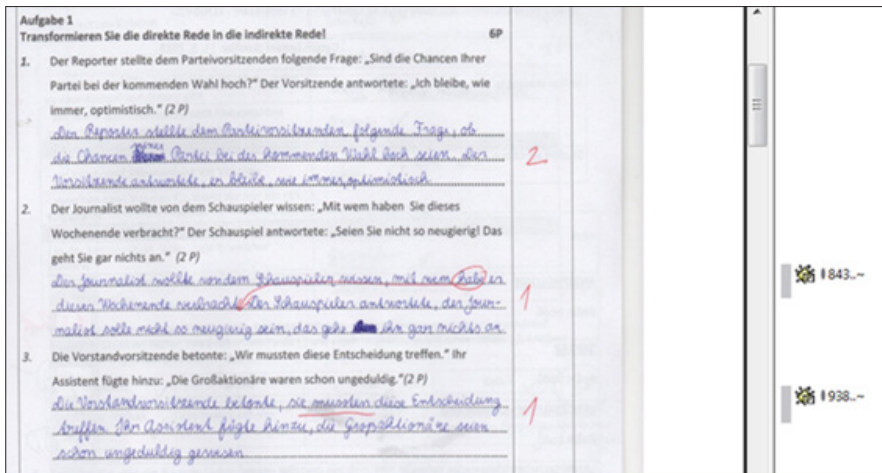 Aufgabe 1
Transformieren Sie die direkte Rede in die indirekte Rede! 6P
1. Der Reporter stellte dem Parteivorsitzenden folgende Frage: „Sind die Chancen Ihrer
Partei bei der kommenden Wahl hoch?" Der Vorsitzende antwortete: „Ich bleibe, wie
immer, optimistisch." (2 P)
Der Reporter stellte dem Parteivorsitzenden folgende Frage, ob
die Chancen seiner Partei bei der kommenden Wahl hoch seien. Der
Vorsitzende antwortete, er bleibe, wie immer, optimistisch.
2
2. Der Journalist wollte von dem Schauspieler wissen: „Mit wem haben Sie dieses
Wochenende verbracht?" Der Schauspiel antwortete: „Seien Sie nicht so neugierig! Das
geht Sie gar nichts an." (2 P)
Der Journalist wollte von dem Schauspieler wissen, mit wem habe er
dieses Wochenende verbracht. Der Schauspieler antwortete, der Jour-
nalist solle nicht so neugierig sein, das gehe ihn gar nichts an.
1
3. Die Vorstandvorsitzende betonte: „Wir mussten diese Entscheidung treffen." Ihr
Assistent fügte hinzu: „Die Großaktionäre waren schon ungeduldig."(2 P)
Die Vorstandvorsitzende betonte, sie mussten diese Entscheidung
treffen. Ihr Assistent fügte hinzu, die Großaktionäre seien
schon ungeduldig gewesen
1
843..~
938..~